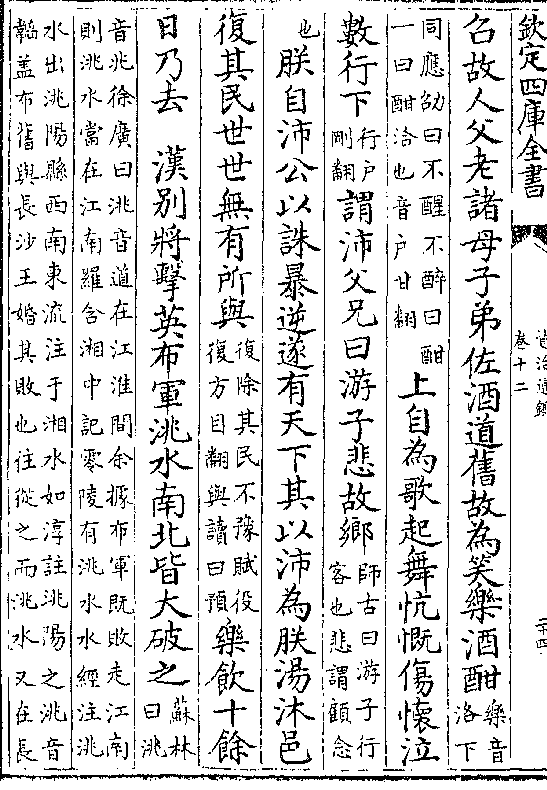 欽定四庫全書
資治通鑑
卷十二
二十四
召故人父老諸母子弟佐酒道舊故為笑樂酒酣樂音洛下
同應劭曰不醒不醉曰酣一曰酣洽也音户甘翻上自為歌起舞忼慨傷懷泣
數行下行户剛翻謂沛父兄曰游子悲故鄉師古曰游子行客也悲謂顧念
也朕自沛公以誅暴逆遂有天下其以沛為朕湯沐邑
復其民世世無有所與復除其民不豫賦役復方目翻與讀曰預樂飲十餘
日乃去 漢别將擊英布軍洮水南北皆大破之蘇林曰洮
音兆徐廣曰洮音道在江淮間余據布軍既敗走江南則洮水當在江南羅含湘中記零陵有洮水水經注洮
水出洮陽縣西南東流注于湘水如淳註洮陽之洮音韜盖布舊與長沙王婚其敗也往從之而洮水又在長